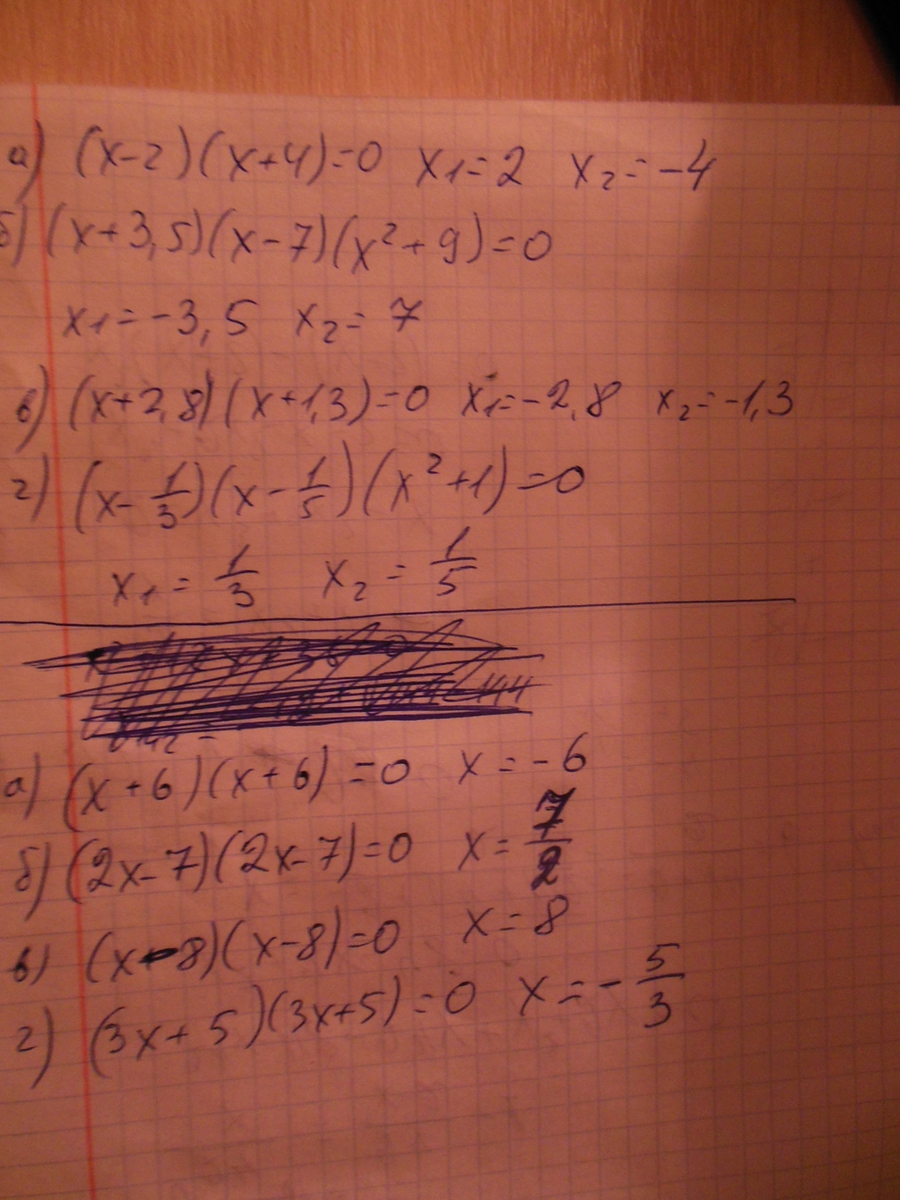 а) (x-2)(x+4)=0 x₁=2 x₂=-4
б) (x+3,5)(x-7)(x²+9)=0
x₁=-3,5 x₂=7
в) (x+2,8)(x+1,3)=0 x₁=-2,8 x₂=-1,3
г) (x-1/3)(x-1/5)(x²+1)=0
x₁=1/3 x₂=1/5
а) (x+6)(x+6)=0 x=-6
б) (2x-7)(2x-7)=0 x=7/2
в) (x-8)(x-8)=0 x=8
г) (3x+5)(3x+5)=0 x=-5/3